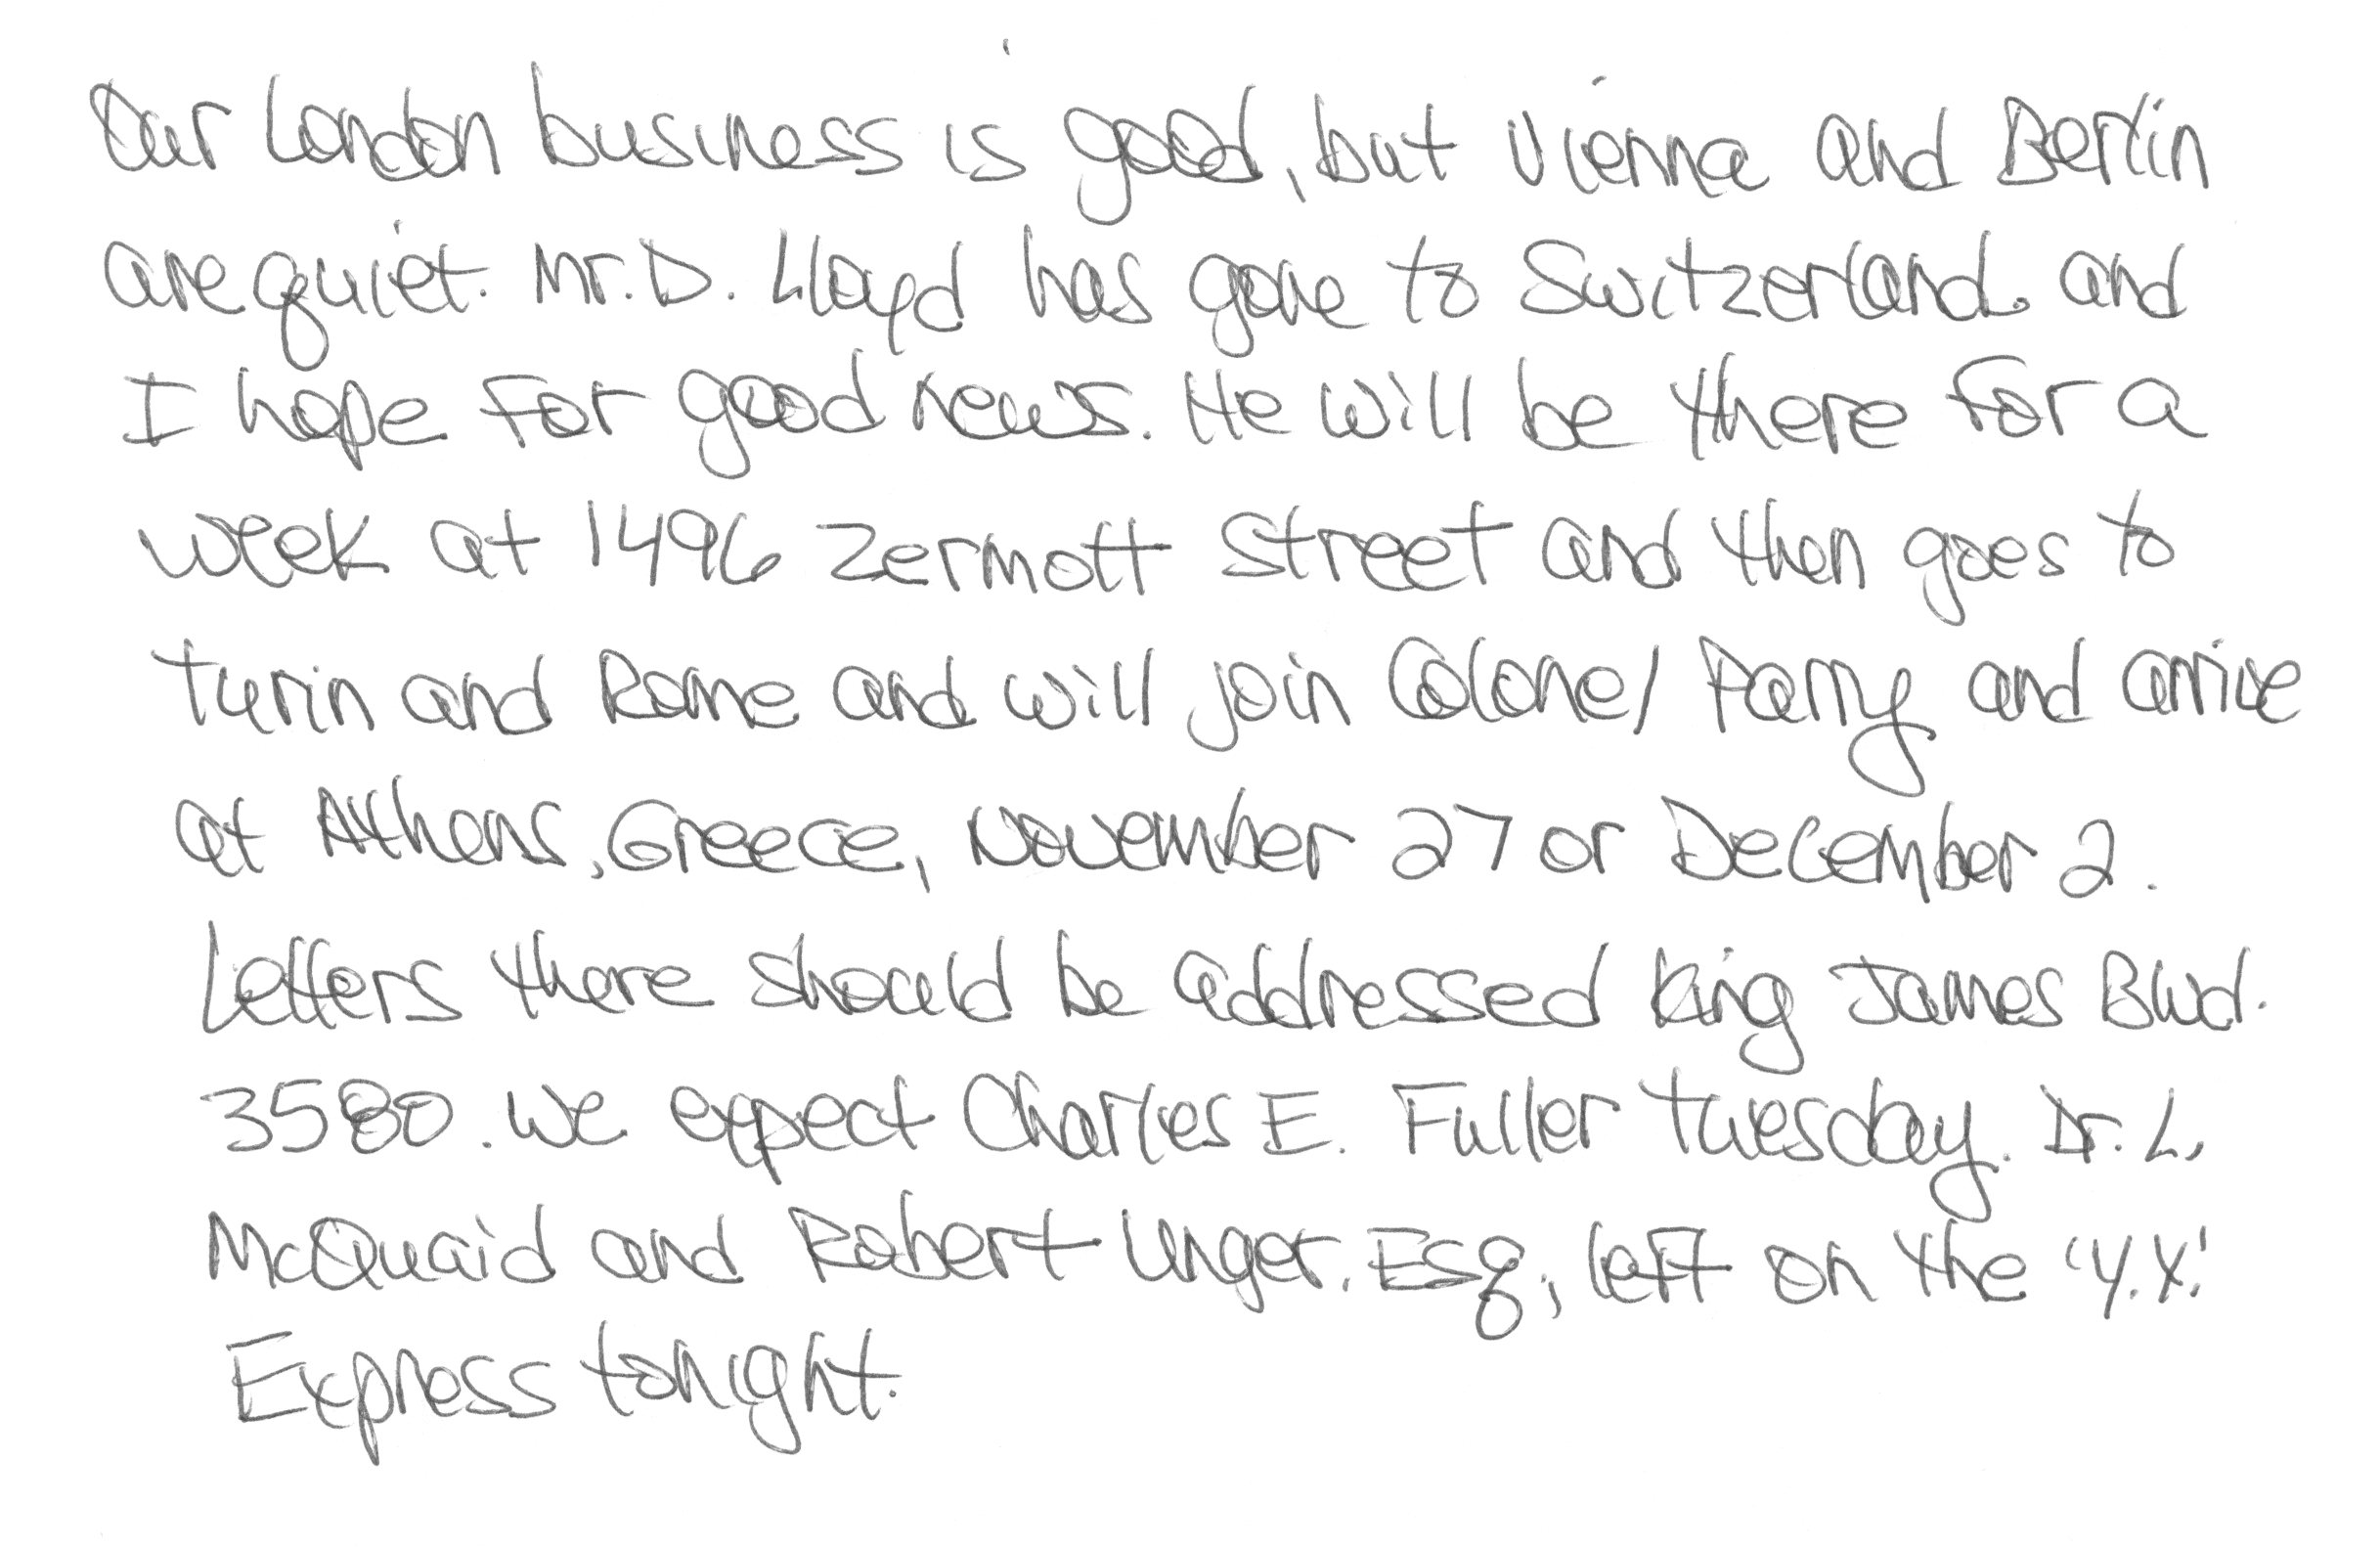 Our London business is good, but Vienna and Berlin
are quiet. Mr. D. Lloyd has gone to Switzerland. and
I hope for good news. He will be there for a
week at 1496 Zermott Street and then goes to
Turin and Rome and will join Colonel Parry and arrive
at Athens, Greece, November 27 or December 2.
Letters there should be addressed King James Blvd.
3580. We expect Charles E. Fuller Tuesday. Dr. L.
McQuaid and Robert Unger. Esq, left on the 'Y.X.'
Express tonight.